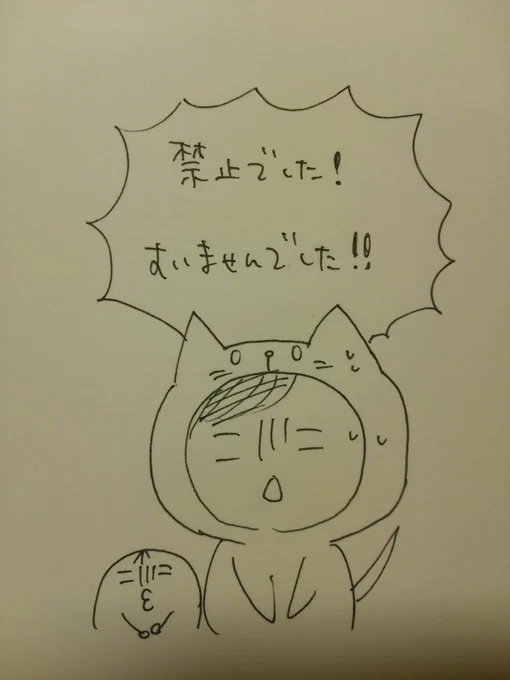 禁止でした!
すいませんでした!!